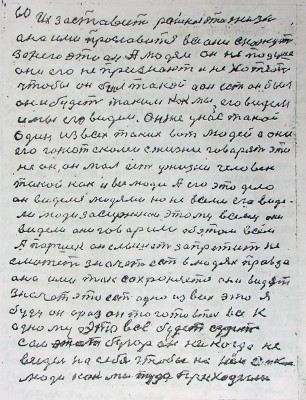 60 Их заставит райкатожизнь
ана ими прославится все они скажут
за него это он А людям он не подиш
они его не признают и не хотять
чтобы он был такой а он есть он был
он и будет таким как мы его видем
и мы его видем. Он же у нас такой
один из всех таких вот людей а они
его гонют с ними с жизни говарят это
не он, он мол ест у жизни человек
такой как и все люди А его это дело
он виделся людями но не всеми его виде
ли люди за служения этому всему они
видели они говорили об этом всём
А порции он лишнего запретит не
сможет значет есть в людях правда
ана ими так сохраняется они видять
значет это есть одно из всех это Я
будь он ораз это готовится все к
одному Это всё будет судить
сам этот бугор он никогда не
видел на себя чтобы на нём
люди как мы туда приходили